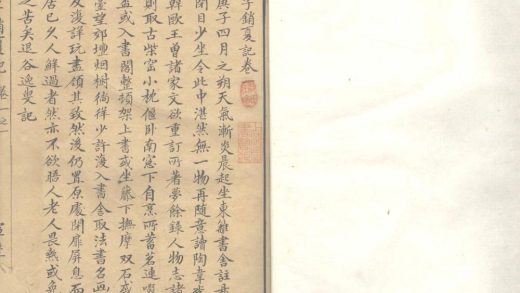 子銷夏記卷
庚子四月之朔天氣漸炎晨起坐東籬書舍註
閉目少坐令此中湛然無一物再隨意讀陶韋
韓歐王曾諸家文欲重訂所著夢餘錄人物志諸
則取古柴窰小枕偃卧南窓下自烹所蓄茗連啜
盂或入書閣整頓架上書或坐藤下撫摩雙石或
臺望郊壇烟樹徜徉少許復入書舍取法書名画
反復詳玩盡領其致然後仍置原處閉扉屏息而
居已久人鮮過者然亦不欲晤人老人畏熱或免
之苦矣退谷逸叟記
銷夏記 卷之